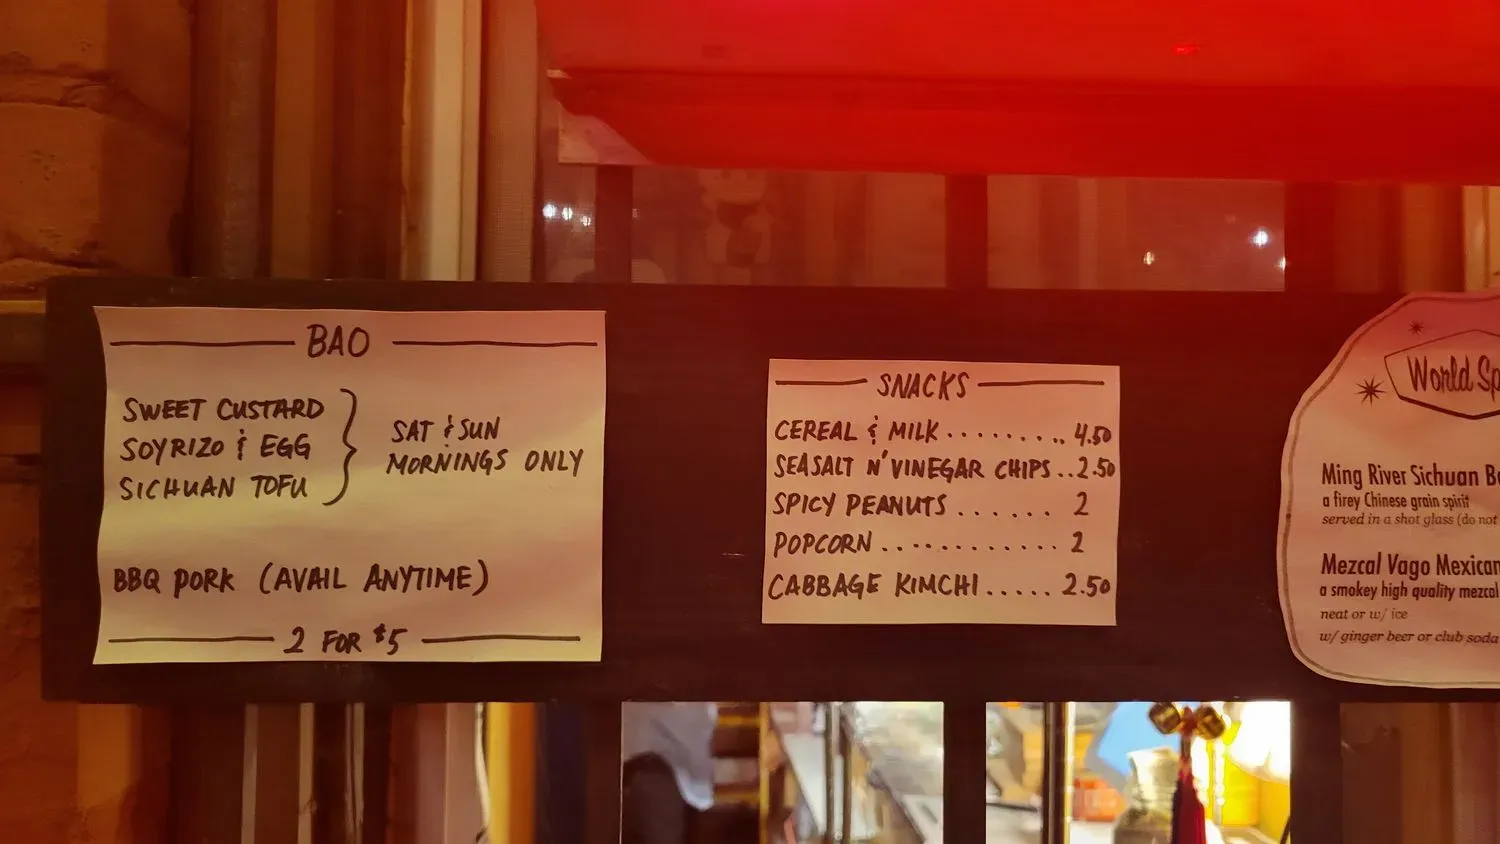 BAO
SWEET CUSTARD
SOYRIZO & EGG
SICHUAN TOFU
SAT & SUN
MORNINGS ONLY
BBQ PORK (AVAIL ANYTIME)
2 FOR $5
SNACKS
CEREAL & MILK ........... 4.50
SEASALT N' VINEGAR CHIPS .. 2.50
SPICY PEANUTS ...... 2
POPCORN ............ 2
CABBAGE KIMCHI ..... 2.50
World
Ming River Sichuan
a firey Chinese grain spirit
served in a shot glass (do not
Mezcal Vago Mexican
a smokey high quality mezcal
neat or w/ ice
w/ ginger beer or club soda